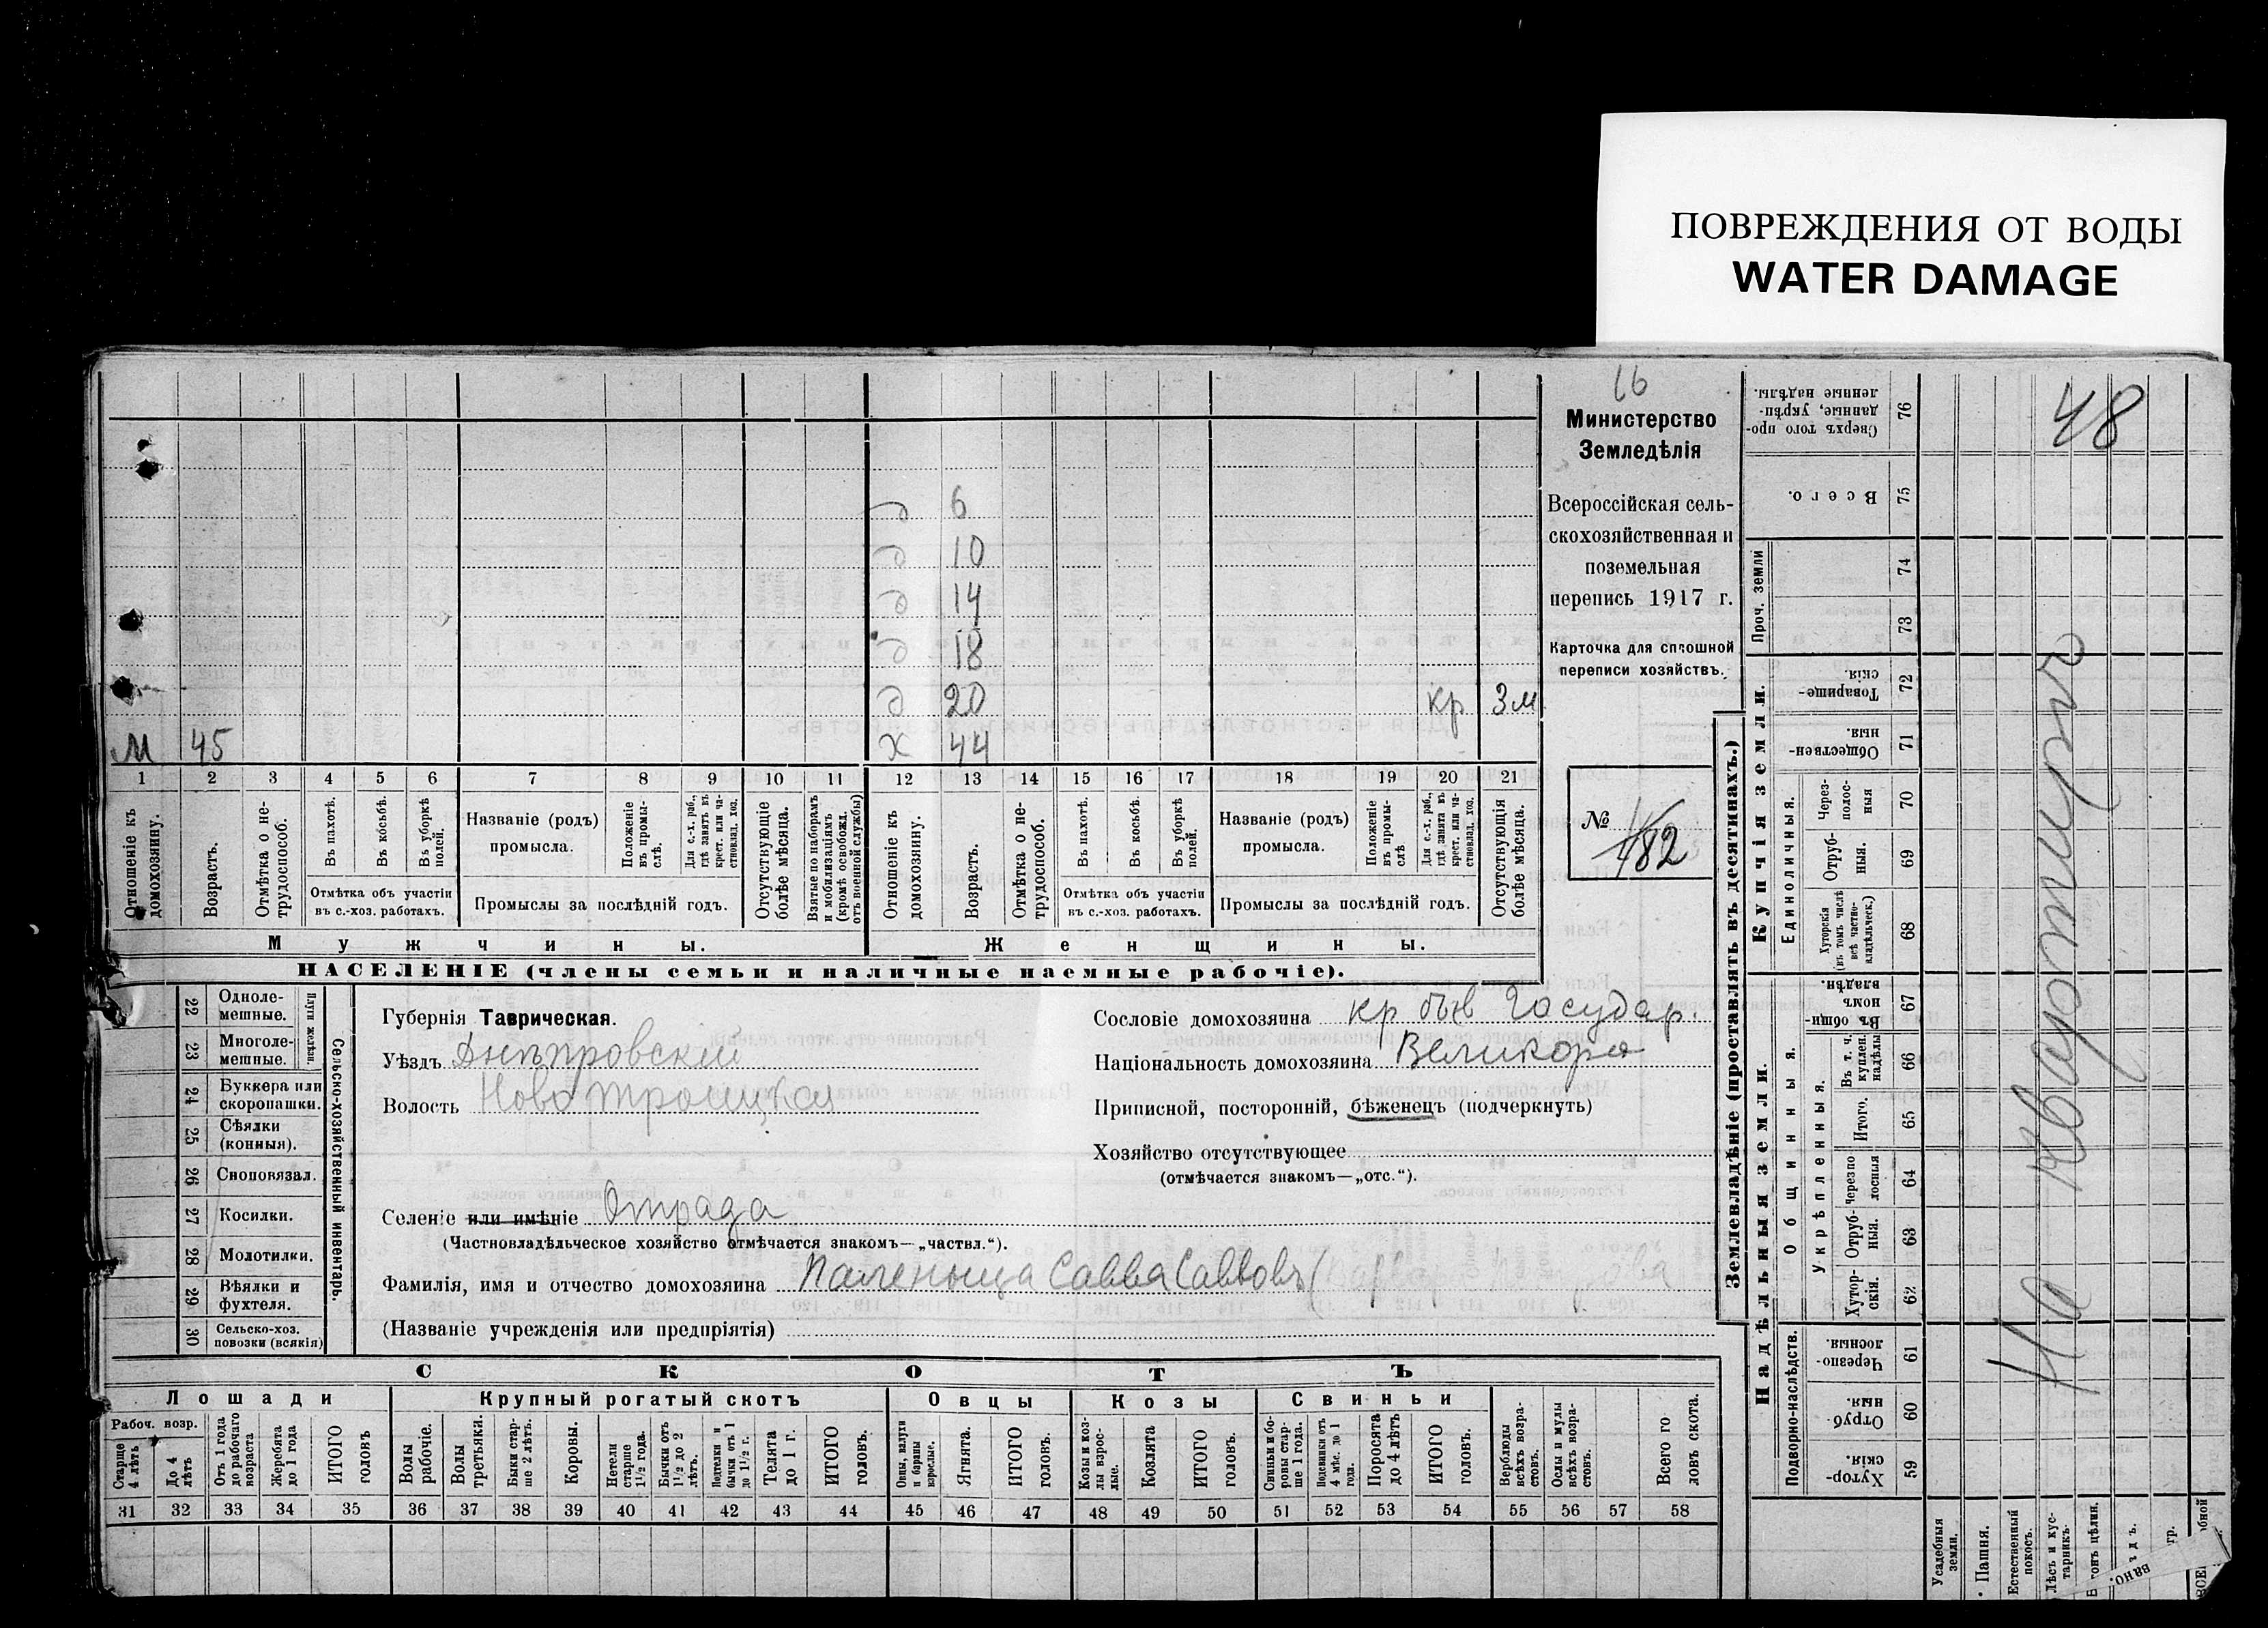 ПОВРЕЖДЕНИЯ ОТ ВОДЫ
WATER DAMAGE
16
Министерство
Земледѣлія
Всероссійская сель-
скохозяйственная и
поземельная
перепись 1917 г.
Карточка для сплошной
переписи хозяйствъ.
№
182
д 6
д 10
д 14
д 18
д 20 кр 3м
м 45 х 44
1 2 3 4 5 6 7 8 9 10 11 12 13 14 15 16 17 18 19 20 21
Отношеніе къ домохозяину.
Возрастъ.
Отмѣтка о не-трудоспособ.
Въ пахотѣ.
Въ косьбѣ.
Въ уборкѣ полей.
Отмѣтка объ участіи
въ с.-хоз. работахъ.
Названіе (родъ)
промысла.
Положеніе въ промы-слѣ.
Для с.-х. раб., гдѣ занятъ въ крест. или ча-стновлад. хоз.
Промыслы за послѣдній годъ.
Отсутствующіе болѣе мѣсяца.
Взятые по наборамъ и мобилизаціямъ (кромѣ освобожд. отъ военной службы)
Отношеніе къ домохозяину.
Возрастъ.
Отмѣтка о не-трудоспособ.
Въ пахотѣ.
Въ косьбѣ.
Въ уборкѣ полей.
Отмѣтка объ участіи
въ с.-хоз. работахъ.
Названіе (родъ)
промысла.
Положеніе въ промы-слѣ
Для с.-х. раб., гдѣ занята въ крест. или ча-стновлад. хоз.
Промыслы за послѣдній годъ.
Отсутствующія болѣе мѣсяца.
Мужчины. Женщины.
НАСЕЛЕНІЕ (члены семьи и наличные наемные рабочіе).
Сельско-хозяйственный инвентарь.
Плуги желѣзн.
22 Одноле-мешные.
23 Многоле-мешные.
24 Буккера или скоропашки.
25 Сѣялки (конныя).
26 Сноповязал.
27 Косилки.
28 Молотилки.
29 Вѣялки и фухтеля.
30 Сельско-хоз. повозки (всякія)
Губернія Таврическая.
Уѣздъ Днѣпровскій
Волость Ново Троицкая
Селеніе или имѣніе Отрада
(Частновладѣльческое хозяйство отмѣчается знакомъ—„частвл.“).
Фамилія, имя и отчество домохозяина Паленыща Савва Саввовъ
(Названіе учрежденія или предпріятія)
Сословіе домохозяина кр быв Государ.
Національность домохозяина Великоро
Приписной, посторонній, бѣженецъ (подчеркнуть)
Хозяйство отсутствующее
(отмѣчается знакомъ—„отс.“).
СКОТЪ
Лошади Крупный рогатый скотъ Овцы Козы Свиньи
Рабоч. возр.
Старше 4 лѣтъ
До 4 лѣтъ
Отъ 1 года до рабочаго возраста
Жеребята до 1 года
ИТОГО головъ
Волы рабочіе.
Волы третьяки.
Быки стар-ше 2 лѣтъ.
Коровы.
Нетели старше 1½ года.
Бычки отъ 1½ до 2 лѣтъ.
Подтелки и бычки отъ 1 до 1½ г.
Телята до 1 г.
ИТОГО головъ.
Овцы, валухи и бараны взрослые.
Ягнята.
ИТОГО головъ.
Козы и коз-лы взрос-лые.
Козлята
ИТОГО головъ.
Свиньи и бо-ровы стар-ше 1 года.
Подсвинки отъ 4 мѣс. до 1 года.
Поросята до 4 лѣтъ
ИТОГО головъ.
Верблюды всѣхъ возра-стовъ.
Ослы и мулы всѣхъ возра-стовъ.
Всего го ловъ скота.
31 32 33 34 35 36 37 38 39 40 41 42 43 44 45 46 47 48 49 50 51 52 53 54 55 56 57 58
Землевладѣніе (проставлять въ десятинахъ.)
Надѣльныя земли.
Купчія земли.
Проч. земли
Подворно-наслѣдств.
Общинныя.
Укрѣпленныя.
Единоличныя.
76 Сверхъ того про-данные, укрѣп-ленные надѣлы.
75 Всего.
74
73
72 Товарище-скія.
71 Обществен-ныя.
70 Через-полос-ныя
69 Отруб-ныя.
68 Хуторскія (въ томъ числѣ всѣ частно-владѣльческ.)
67 Въ общи номъ владѣн.
66 Въ т. ч. куплен. надѣлы
65 Итого.
64 Черезпо лосныя
63 Отруб-ныя.
62 Хутор-скія.
61 Черезпо-лосныя.
60 Отруб ныя.
59 Хутор-скія.
Усадебныя земли.
Пашня.
Естественный покосъ.
Лѣсъ и кус-тарникъ.
48
На квартирѣ